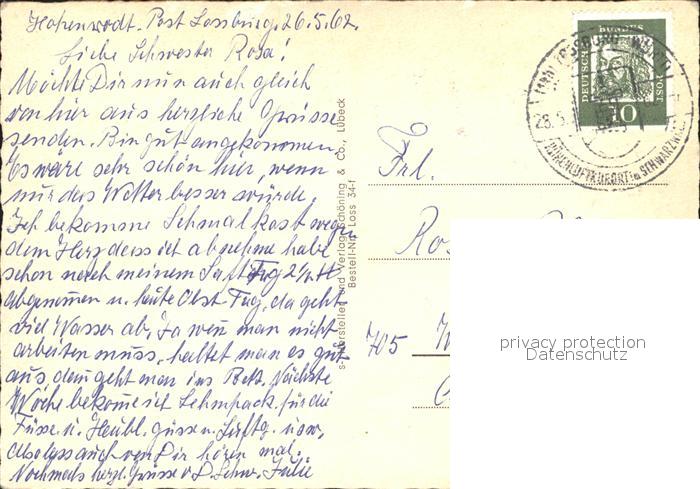 Hohenrodt. Post Lossburg, 26.5.62.
Liebe Schwester Rosa!
Möchte Dir nun auch gleich
von hier aus herzliche Grüsse
senden. Bin gut angekommen,
Es wäre sehr schön hier, wenn
nur das Wetter besser würde.
Ich bekomme Schmalkost wegen
dem Herz dass ich abnehme habe
schon nach meinem Saft Tag 2½ H
abgenommen u. heute Obst Tag, da geht
viel Wasser ab, Ja wen man nicht
arbeiten muss, haltet man es gut
aus, dan geht man ins Bett. Nächste
Woche bekome ich Lehmpack. für die
Füsse u. Heubl. güsse u. Luftg. usw,
Also lass auch von Dir hören mal.
Nochmals herzl. Grüsse v. D. Schw. Julie
Hersteller und Verlag Schöning & Co., Lübeck
Bestell-Nr. Loss 34-f
DEUTSCHE BUNDESPOST
10
LOSSBURG (WÜRTT)
HÖHENLUFTKURORT im SCHWARZWALD
Frl.
705
privacy protection
Datenschutz